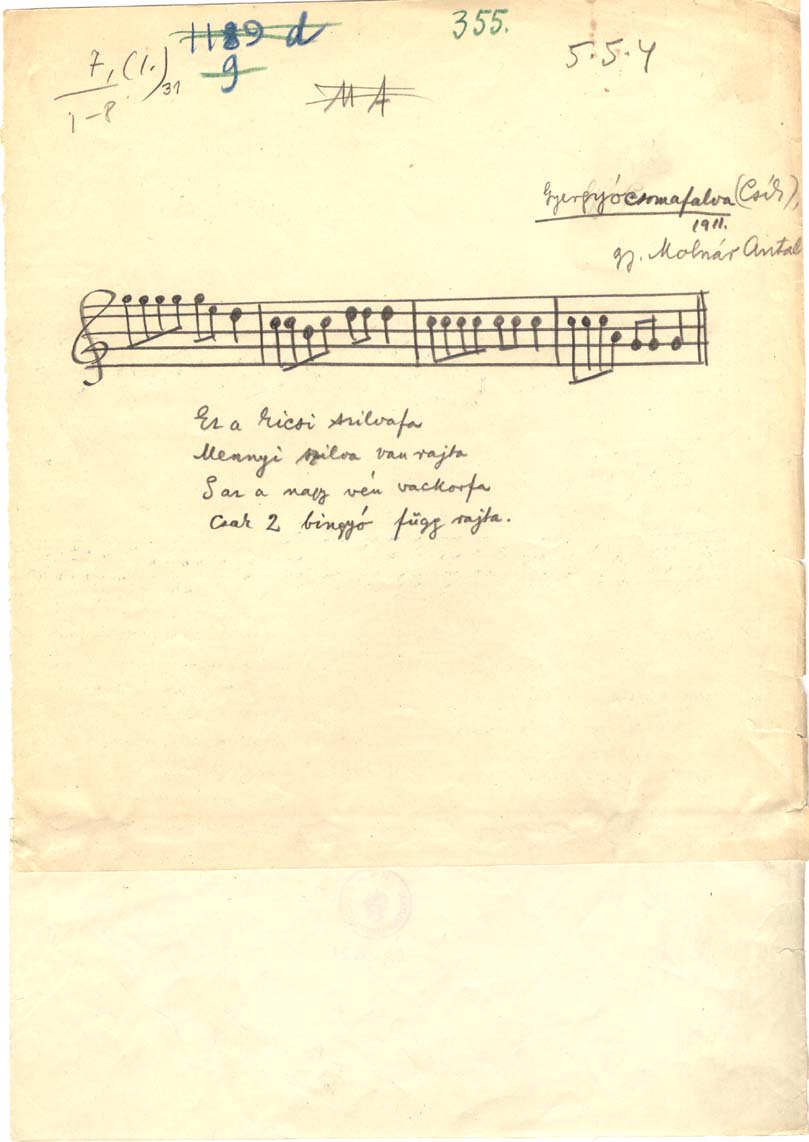 1189 d
355.
5.5.4
7, (1.)31
9
1-8
MA
Gyergyócsomafalva (Csík),
1911.
gj. Molnár Antal
Ez a kicsi szilvafa
Mennyi szilva van rajta
S az a nagy vén vackorfa
Csak 2 bingyó függ rajta.